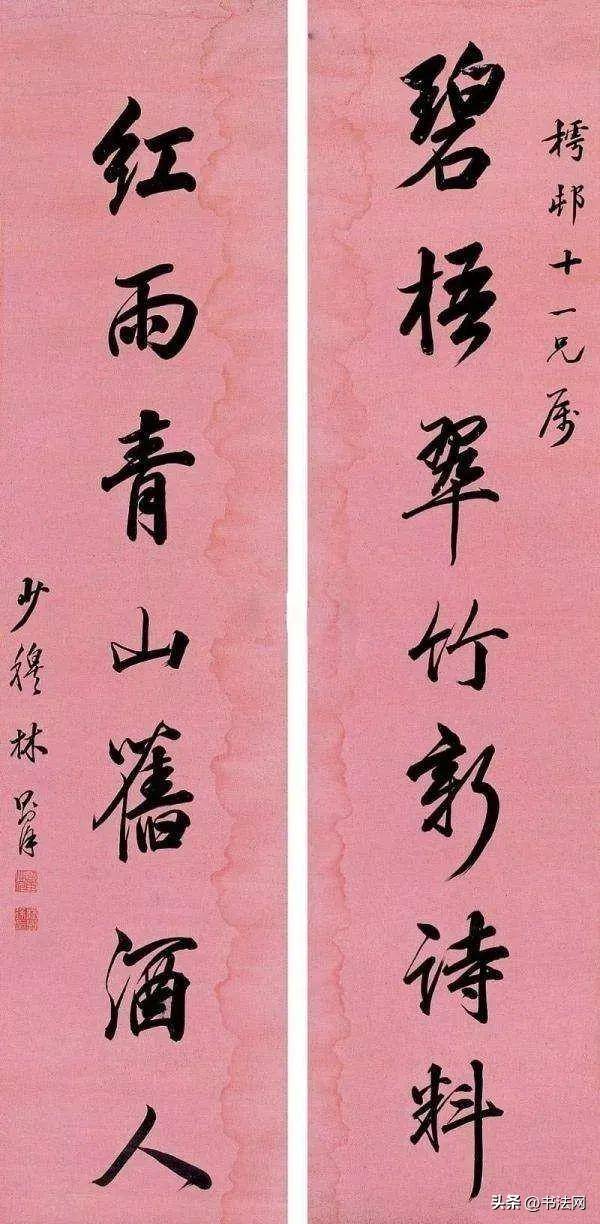 樗邨十一兄属
碧梧翠竹新诗料
红雨青山舊酒人
少穆林则徐
头条 @书法网